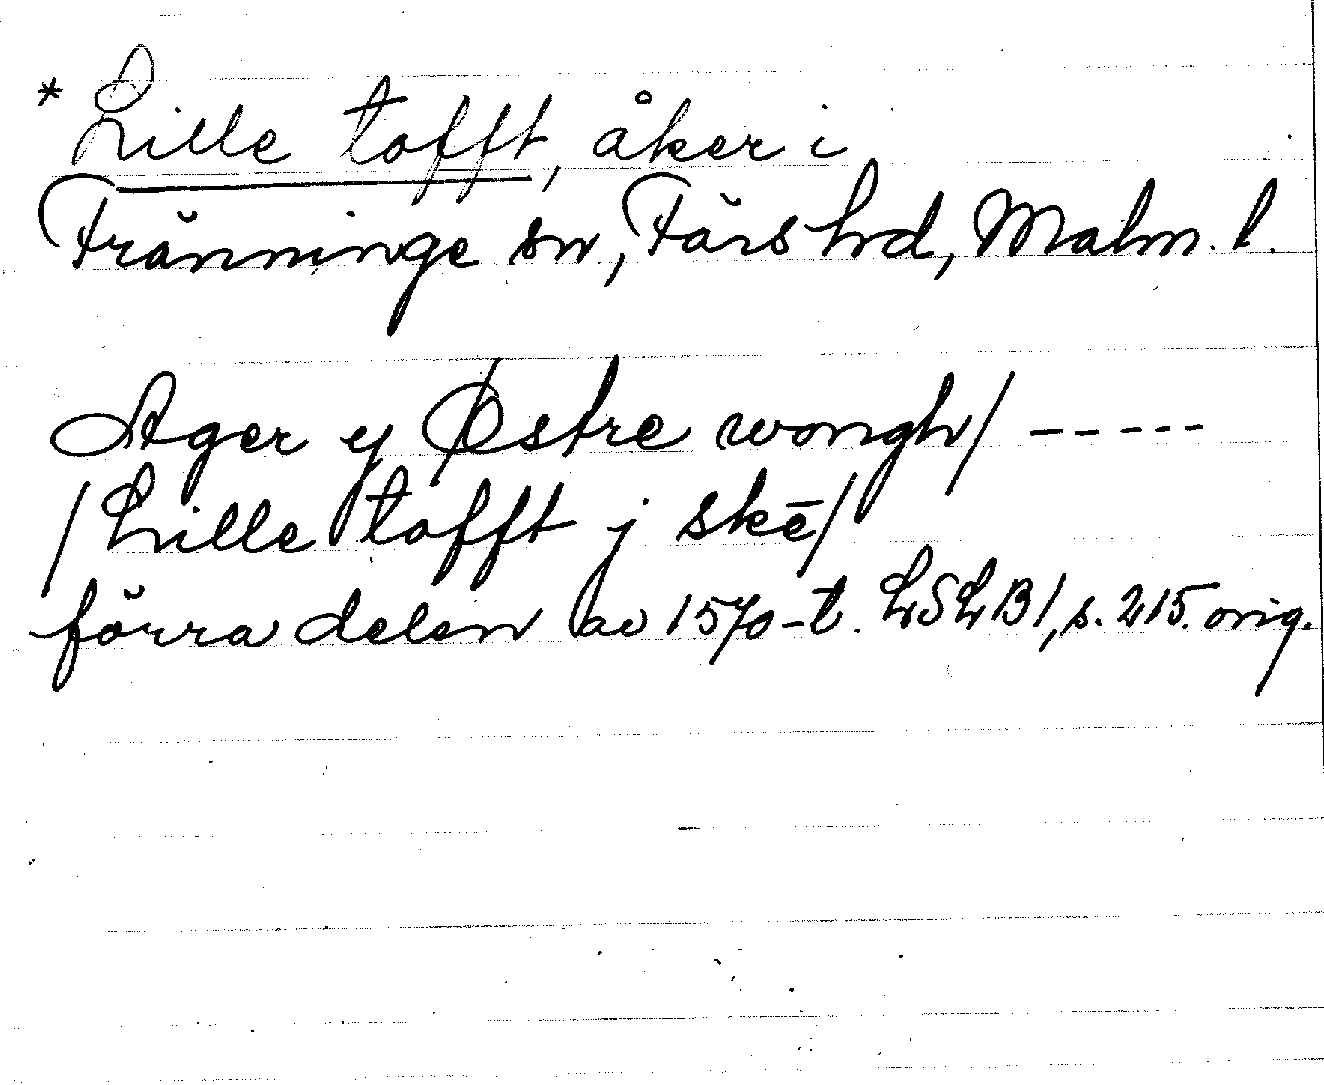 * Lille tofft, åker i
Fränninge sn, Färs hrd, Malm. l.
Ager y Østre wongh/ -----
/Lille tofft j skē/
förra delen av 1570-t. LSLB1, s. 215. orig.